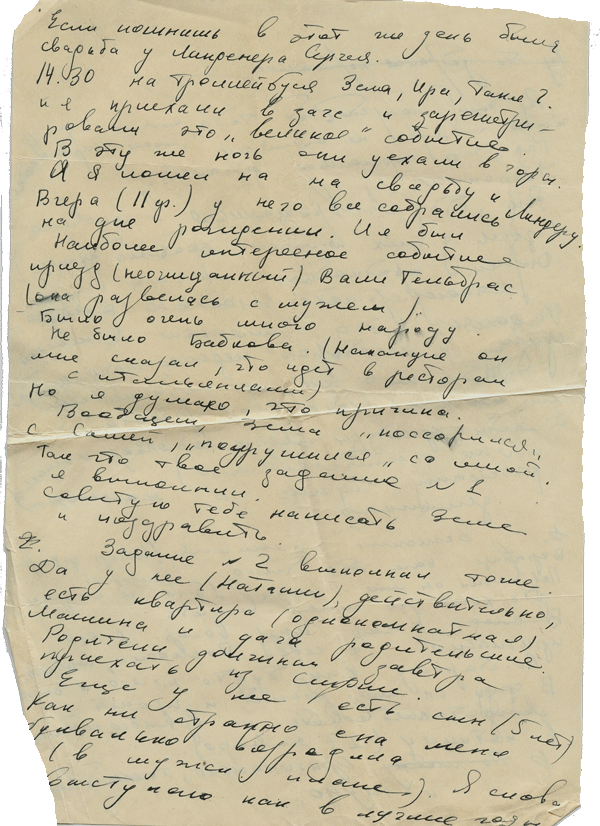 Если помнишь в этот же день была
свадьба у Линденера Сергея.
14.30 на троллейбусе Зема, Ира, Таня Г.
и я приехали в загс и зарегистри-
ровали это „великое" событие.
В эту же ночь они уехали в горы.
А я пошел на на свадьбу к Линдеру.
Вчера (11 у.) у него все собрались
на дне рождении. И я был
Наиболее интересное событие
приезд (неожиданный) Вали Гельбрас
(она развелась с мужем).
Было очень много народу.
Не было Бабкова. (Накануне он
мне сказал, что идет в ресторан
с итальянцами)
Но я думаю, это причина.
Вообщем, Зема „поссорился„
с Сашей, „подружился„ со мной.
Так что твое задание №1
я выполнил.
Советую тебе написать Земе
и поздравить.
2. Задание №2 выполнил тоже.
Да у нее (Наташи), действительно,
есть квартира (однокомнатная)
Машина и дача родительские.
Родители должны завтра
приехать из Сирии.
Еще у нее есть сын (5 лет)
Как ни странно она меня
буквально возродила
(в мужском плане). Я снова
выступаю как в лучшие годы